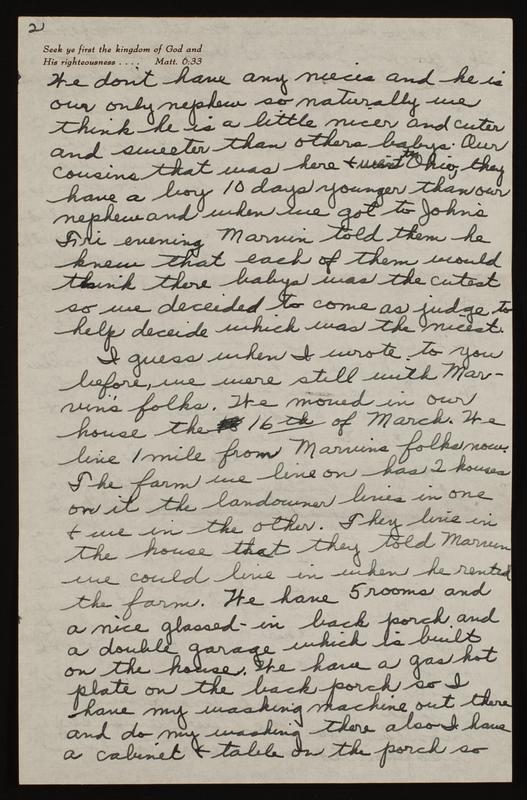 2
Seek ye first the kingdom of God and
His righteousness .... Matt. 6:33
We don't have any nieces and he is
our only nephew so naturally we
think he is a little nicer and cuter
and sweeter than others babys. Our
cousins that was here + Ohio, they
have a boy 10 days younger than our
nephew and when we got to John's
Fri evening Marvin told them he
knew that each of them would
think there babys was the cutest
so we deceided to come as judge to
help deceide which was the nicest.
I guess when I wrote to you
before, we were still with Mar-
vin's folks. We moved in our
house the 16th of March. We
live 1 mile from Marvins folks now.
The farm we live on has 2 houses
on it the landowner lives in one
+ we in the other. They live in
the house that they told Marvin
we could live in when he rented
the farm. We have 5 rooms and
a nice glassed-in back porch and
a double garage which is built
on the house. We have a gas hot
plate on the back porch so I
have my washing machine out there
and do my washing there also I have
a cabinet + table on the porch so